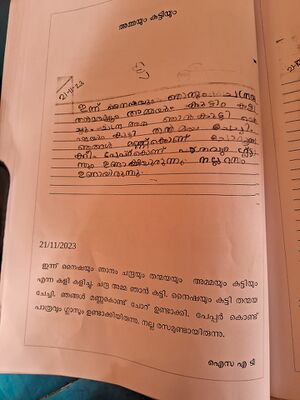 അമ്മയും കുട്ടിയും
21/11/23
ഇന്ന് നൈഷയും ഞാനും
കളി
ഞാൻ കുട്ടി
കുട്ടി തന്മയ ചേച്ചി.
ഞങ്ങൾ മണ്ണുകൊണ്ട് ചോറുണ്ടാ
ക്കി. പേപ്പർകൊണ്ട്
ഉണ്ടാക്കിയിരുന്നു. നല്ല രസം
ഉണ്ടായിരുന്നു.
21/11/2023
ഇന്ന് നൈഷയും ഞാനും ചന്ദ്രയും തന്മയയും അമ്മയും കുട്ടിയും
എന്ന കളി കളിച്ചു. ചന്ദ്ര അമ്മ ഞാൻ കുട്ടി. നൈഷയും കുട്ടി തന്മയ
ചേച്ചി. ഞങ്ങൾ മണ്ണുകൊണ്ട് ചോറ് ഉണ്ടാക്കി. പേപ്പർ കൊണ്ട്
പാത്രവും ഗ്ലാസും ഉണ്ടാക്കിയിരുന്നു. നല്ല രസമുണ്ടായിരുന്നു.
ഐസ എ ടി